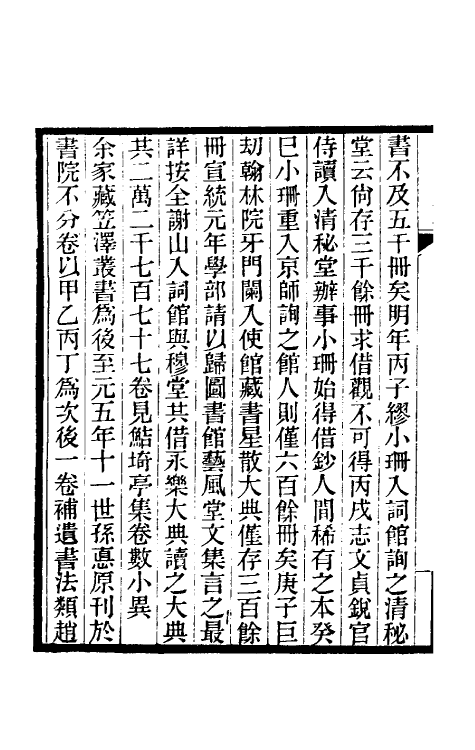 書不及五千冊矣明年丙子繆小珊入詞館詢之清秘
堂云尙存三千餘冊求借觀不可得丙戌志文貞銳官
侍讀入清秘堂辦事小珊始得借鈔人間稀有之本癸
巳小珊重入京師詢之館人則僅六百餘冊矣庚子巨
劫翰林院牙門闌入使館藏書星散大典僅存三百餘
冊宣統元年學部請以歸圖書館藝風堂文集言之最
詳按全謝山入詞館與穆堂共借永樂大典讀之大典
共二萬二千七百七十七卷見鮚埼亭集卷數小異
余家藏笠澤叢書爲後至元五年十一世孫惪原刊於
書院不分卷以甲乙丙丁爲次後一卷補遺書法類趙